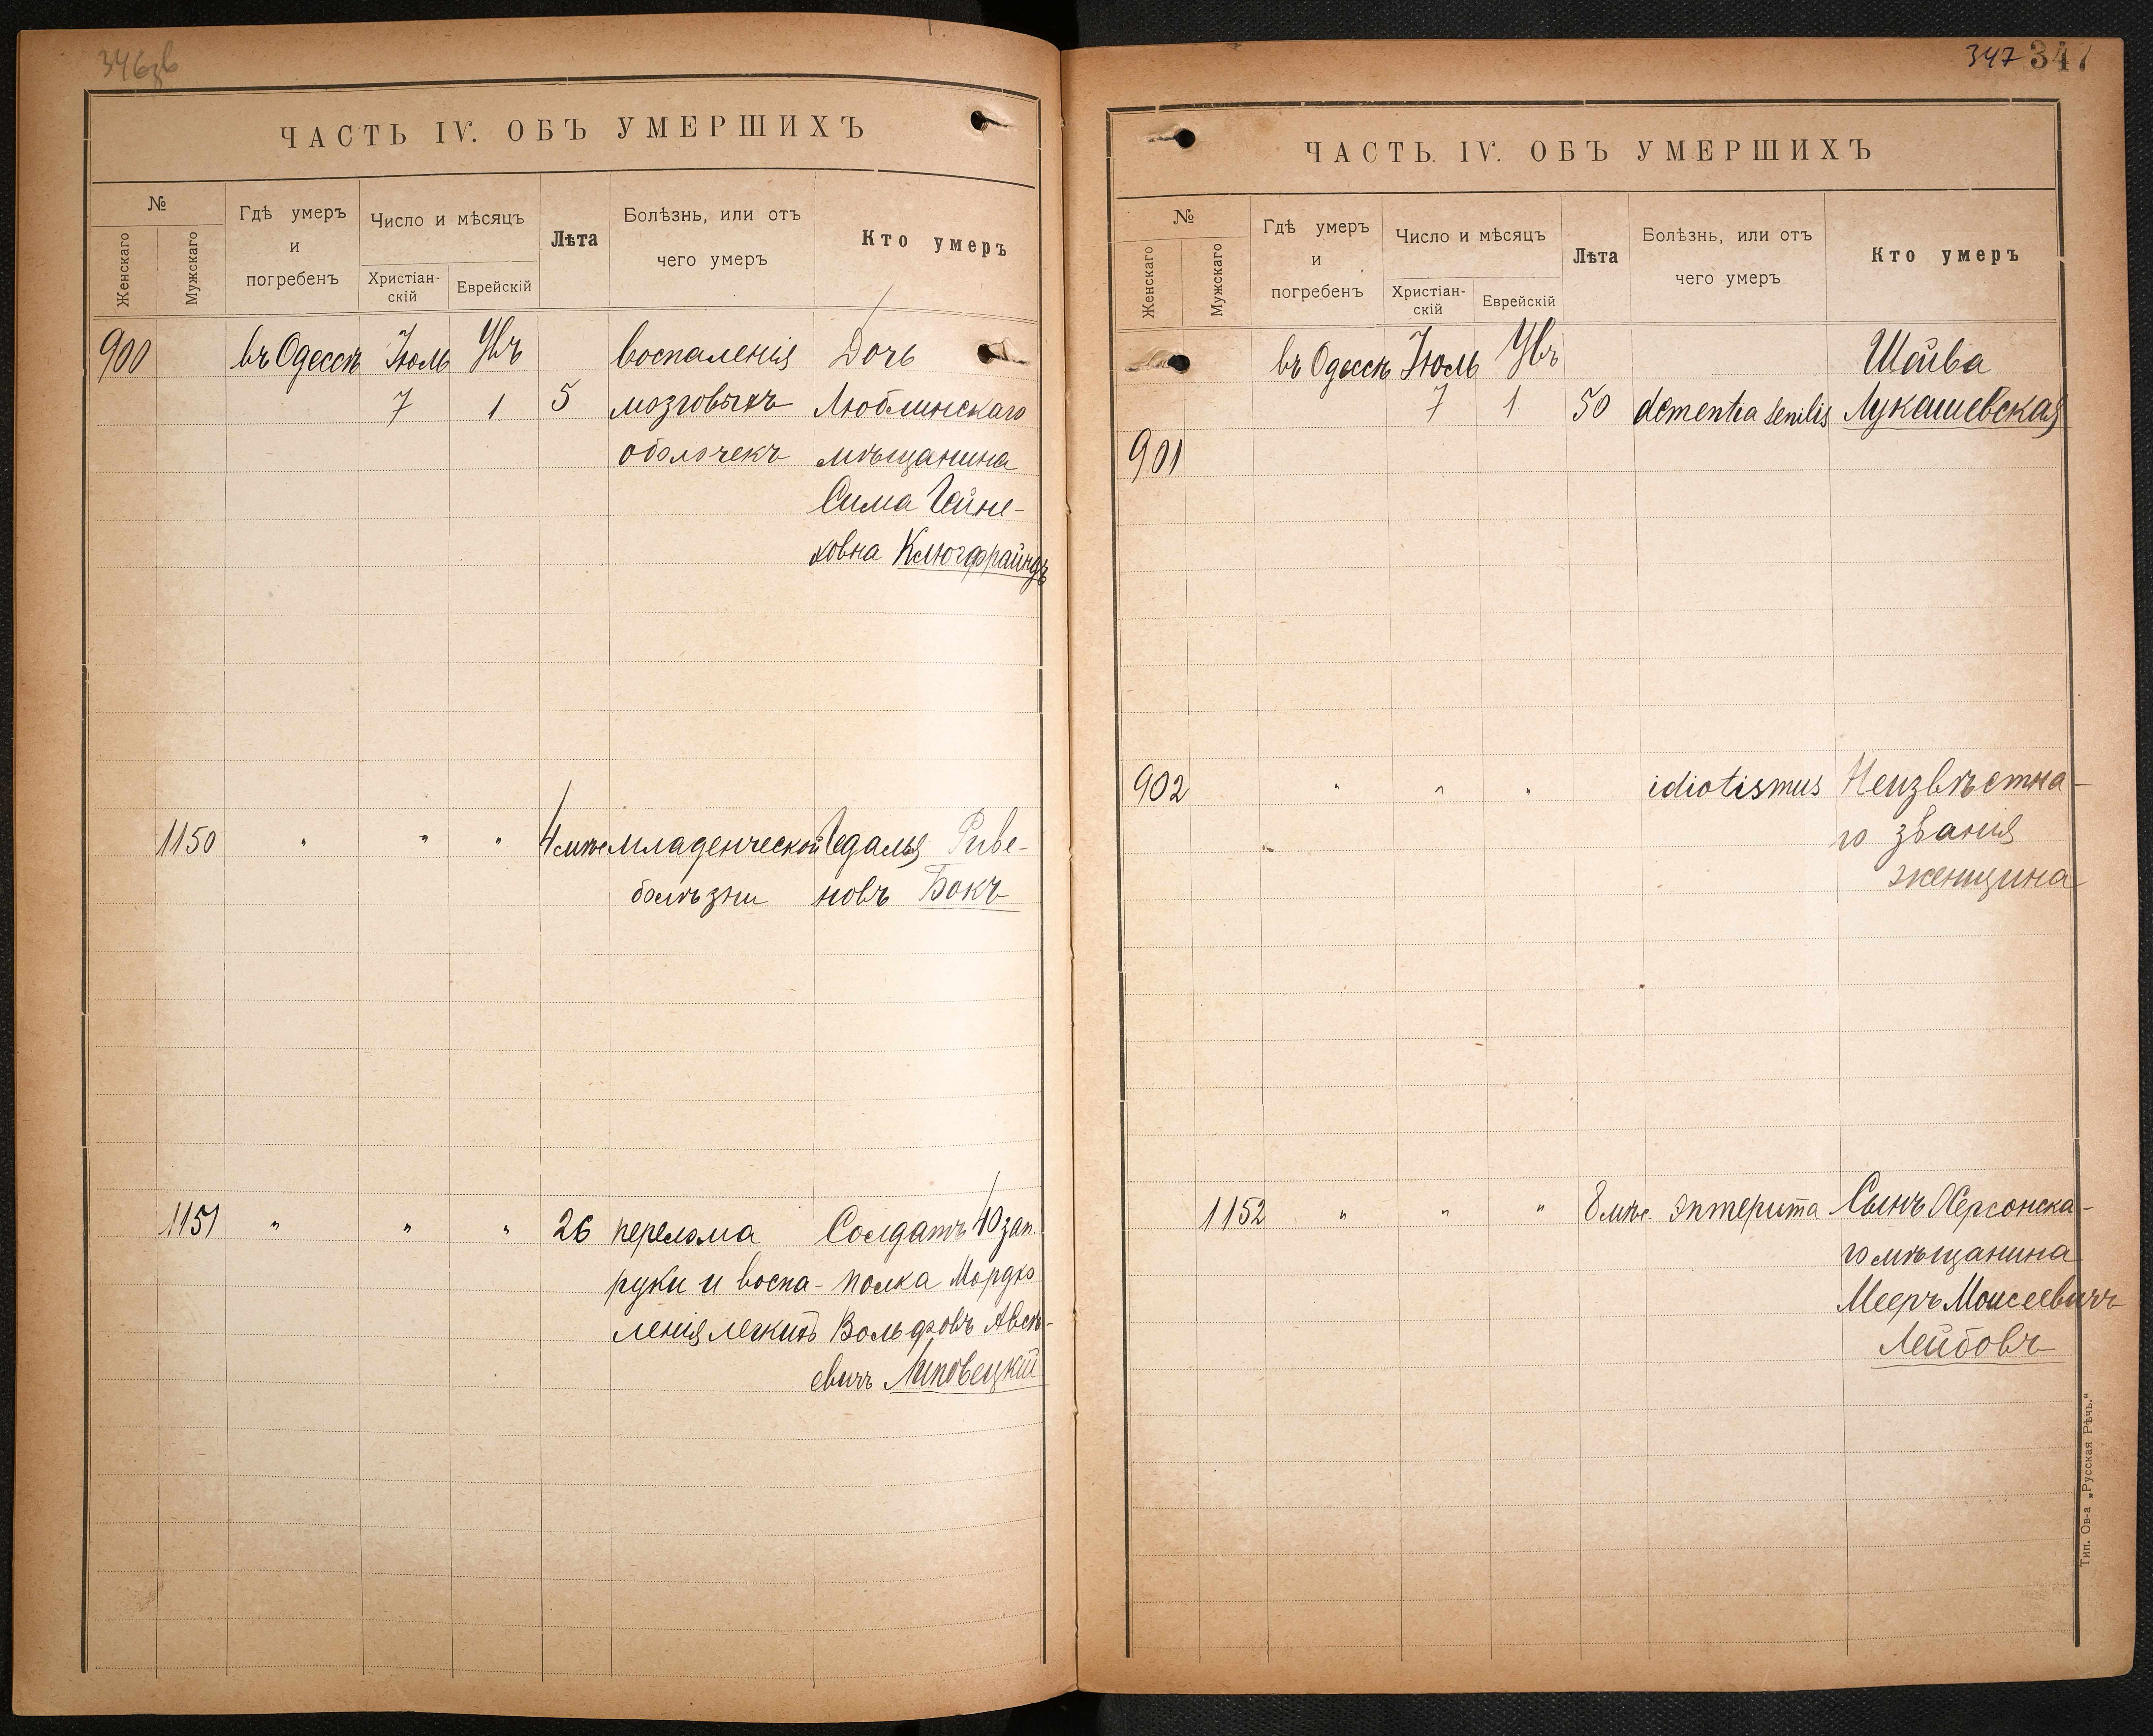 346зв
ЧАСТЬ IV. ОБЪ УМЕРШИХЪ
№
Женскаго
Мужскаго
Гдѣ умеръ
и
погребенъ
Число и мѣсяцъ
Христіан-
скій
Еврейскій
Лѣта
Болѣзнь, или отъ
чего умеръ
Кто умеръ
900 въ Одессѣ Іюль Увъ воспаленія Дочь
7 1 5 мозговыхъ Люблинскаго
оболочекъ мѣщанина
Сима Гейне-
ховна Клюгфрайндъ
1150 " " " 4 мѣс младенческой Гедалья Риве-
болѣзни новъ Бокъ
1151 " " " 26 перелома Солдатъ 10 зап.
руки и воспа- полка Мордко
ленія легкихъ Вольфовъ
евичъ Липовецкій
347 347
ЧАСТЬ IV. ОБЪ УМЕРШИХЪ
№
Женскаго
Мужскаго
Гдѣ умеръ
и
погребенъ
Число и мѣсяцъ
Христіан-
скій
Еврейскій
Лѣта
Болѣзнь, или отъ
чего умеръ
Кто умеръ
въ Одессѣ Іюль Увъ Шейва
7 1 50 dementia senilis Лукашевская
901
902 " " " idiotismus Неизвѣстна-
го званія
женщина
1152 " " " 8 мѣс. энтерита Сынъ Херсонска-
го мѣщанина
Мееръ Моисеевичъ
Лейбовъ
Тип. Ов-а „Русская Рѣчь."